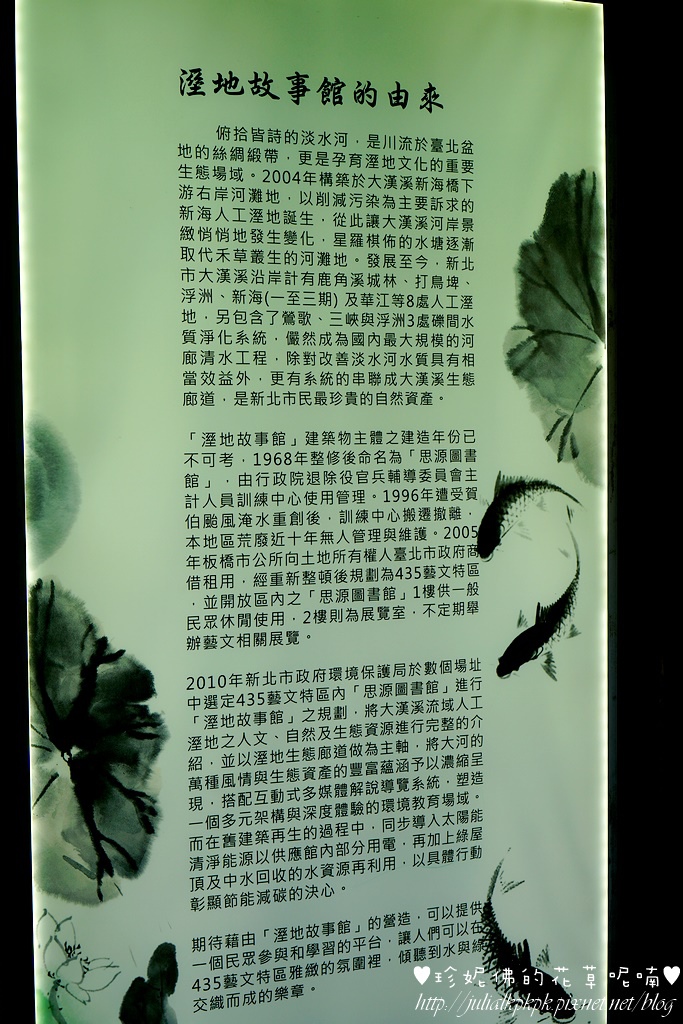 溼地故事館的由來
俯拾皆詩的淡水河，是川流於臺北盆
地的絲綢緞帶，更是孕育溼地文化的重要
生態場域。2004年構築於大漢溪新海橋下
游右岸河灘地，以削減污染為主要訴求的
新海人工溼地誕生，從此讓大漢溪河岸景
緻悄悄地發生變化，星羅棋佈的水塘逐漸
取代禾草叢生的河灘地。發展至今，新北
市大漢溪沿岸計有鹿角溪城林、打鳥埤、
浮洲、新海(一至三期) 及華江等8處人工溼
地，另包含了鶯歌、三峽與浮洲3處礫間水
質淨化系統，儼然成為國內最大規模的河
廊清水工程，除對改善淡水河水質具有相
當效益外，更有系統的串聯成大漢溪生態
廊道，是新北市民最珍貴的自然資產。
「溼地故事館」建築物主體之建造年份已
不可考，1968年整修後命名為「思源圖書
館」，由行政院退除役官兵輔導委員會主
計人員訓練中心使用管理。1996年遭受賀
伯颱風淹水重創後，訓練中心搬遷撤離，
本地區荒廢近十年無人管理與維護。2005
年板橋市公所向土地所有權人臺北市政府商
借租用，經重新整頓後規劃為435藝文特區
，並開放區內之「思源圖書館」1樓供一般
民眾休閒使用，2樓則為展覽室，不定期舉
辦藝文相關展覽。
2010年新北市政府環境保護局於數個場址
中選定435藝文特區內「思源圖書館」進行
「溼地故事館」之規劃，將大漢溪流域人工
溼地之人文、自然及生態資源進行完整的介
紹，並以溼地生態廊道做為主軸，將大河的
萬種風情與生態資產的豐富蘊涵予以濃縮呈
現，搭配互動式多媒體解說導覽系統，塑造
一個多元架構與深度體驗的環境教育場域。
而在舊建築再生的過程中，同步導入太陽能
清淨能源以供應館內部分用電，再加上綠屋
頂及中水回收的水資源再利用，以具體行動
彰顯節能減碳的決心。
期待藉由「溼地故事館」的營造，可以提供
一個民眾參與和學習的平台，讓人們可以在
435藝文特區雅緻的氛圍裡，傾聽到水與綠
交織而成的樂章。
♥珍妮佛的花草呢喃♥
http://julialkpkpk.pixnet.net/blog